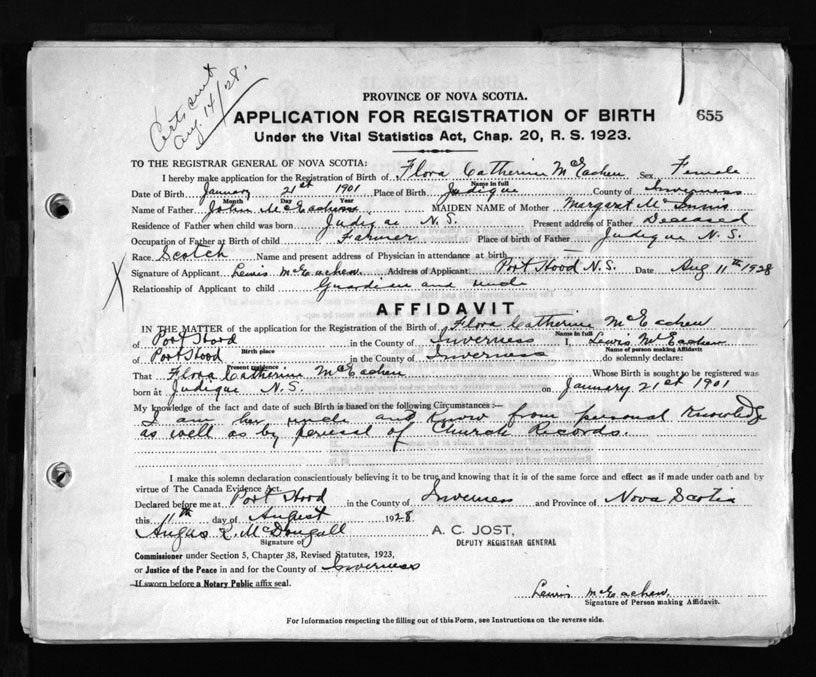 Certs sent
Aug. 14/28.
PROVINCE OF NOVA SCOTIA.
APPLICATION FOR REGISTRATION OF BIRTH
655
Under the Vital Statistics Act, Chap. 20, R. S. 1923.
TO THE REGISTRAR GENERAL OF NOVA SCOTIA:
I hereby make application for the Registration of Birth of Flora Catherine McEachen Sex Female
Name in full
Date of Birth January 21st 1901 Place of Birth Judique County of Inverness
Month Day Year
Name of Father John McEachen MAIDEN NAME of Mother Margaret McInnis
Residence of Father when child was born Judique N.S. Present address of Father Deceased
Occupation of Father at Birth of child Farmer Place of birth of Father Judique N.S.
Race Scotch Name and present address of Physician in attendance at birth —
X Signature of Applicant Lewis McEachen. Address of Applicant Port Hood N.S. Date Aug 11th 1928
Relationship of Applicant to child Guardian and uncle
AFFIDAVIT
IN THE MATTER of the application for the Registration of the Birth of Flora Catherine McEachen
Name in full
of Port Hood in the County of Inverness I, Lewis McEachen
Birth place Name of person making Affidavit
of Port Hood in the County of Inverness do solemnly declare:
Present residence
That Flora Catherine McEachen Whose Birth is sought to be registered was
born at Judique N.S. on January 21st 1901
My knowledge of the fact and date of such Birth is based on the following Circumstances :—
I am her uncle and know from personal knowledge
as well as by perusal of Church Records.
I make this solemn declaration conscientiously believing it to be true and knowing that it is of the same force and effect as if made under oath and by
virtue of The Canada Evidence Act.
Declared before me at Port Hood in the County of Inverness and Province of Nova Scotia
this 11th day of August 1928
Angus R. McDougall A. C. JOST,
Signature of DEPUTY REGISTRAR GENERAL
Commissioner under Section 5, Chapter 38, Revised Statutes, 1923,
or Justice of the Peace in and for the County of Inverness
If sworn before a Notary Public affix seal.
Lewis McEachen.
Signature of Person making Affidavit.
For Information respecting the filling out of this Form, see Instructions on the reverse side.